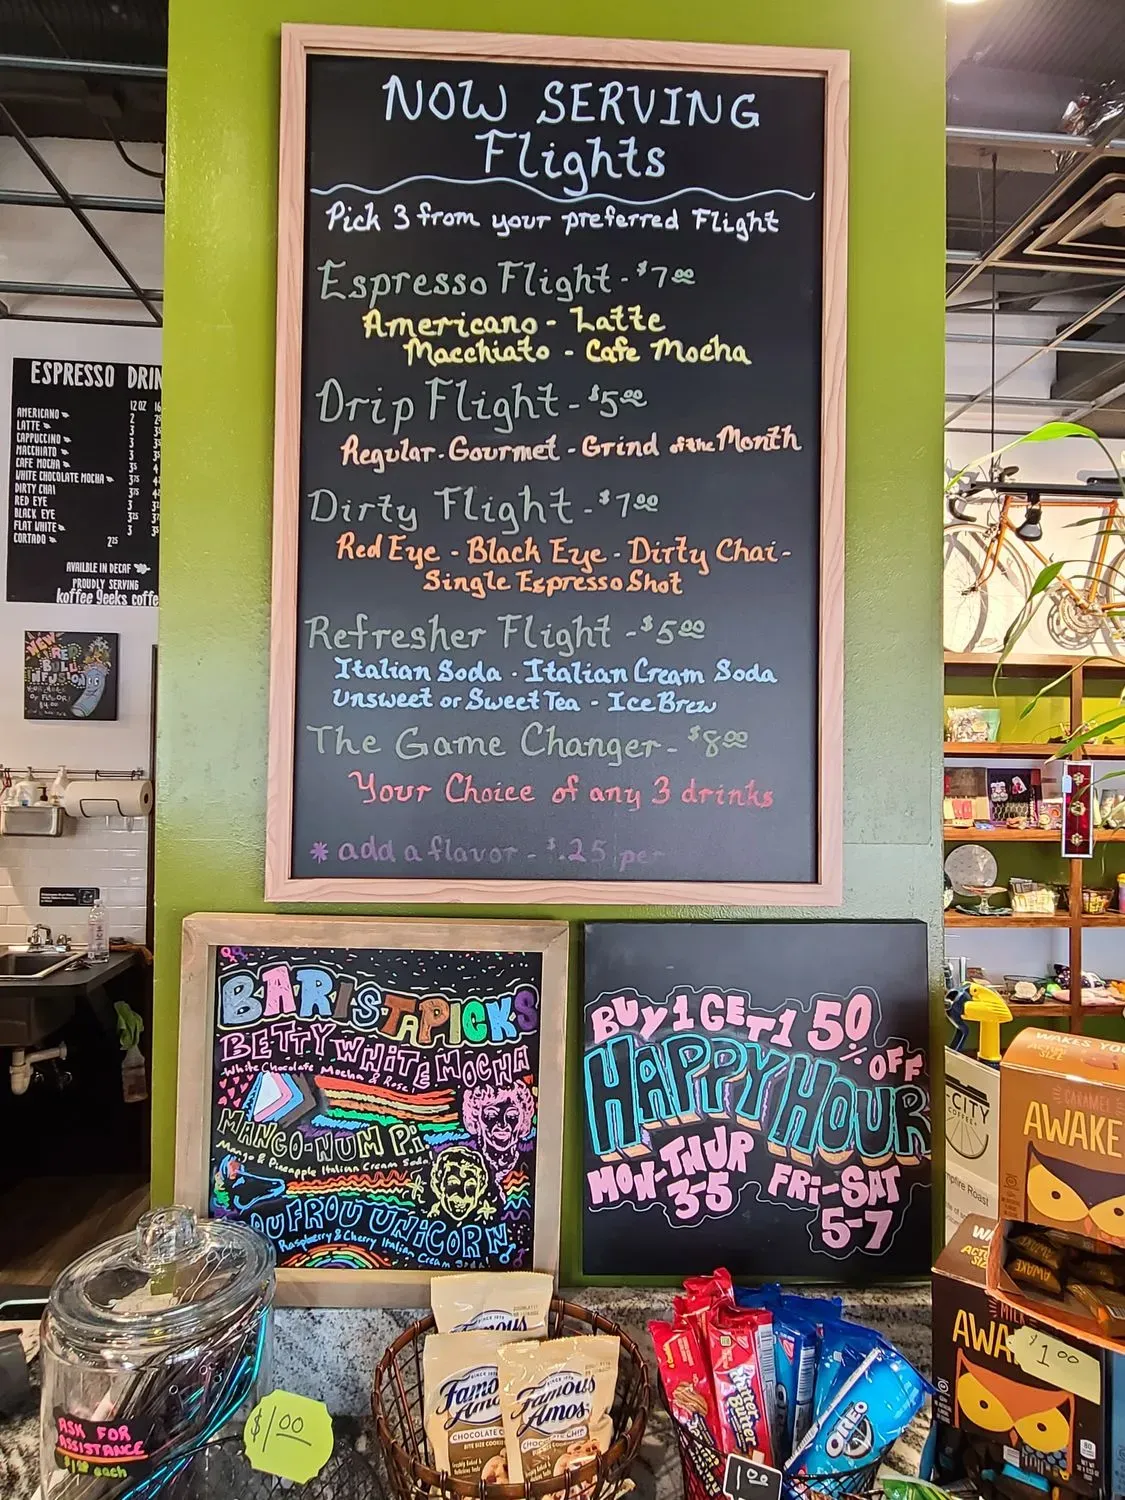 NOW SERVING
Flights
Pick 3 from your preferred Flight
Espresso Flight - $7.00
Americano - Latte
Macchiato - Cafe Mocha
Drip Flight - $5.00
Regular - Gourmet - Grind of the Month
Dirty Flight - $7.00
Red Eye - Black Eye - Dirty Chai -
Single Espresso Shot
Refresher Flight - $5.00
Italian Soda - Italian Cream Soda
Unsweet or Sweet Tea - Ice Brew
The Game Changer - $8.00
Your Choice of any 3 drinks
* add a flavor - $.25 per
ESPRESSO DRIN
12 OZ 16
AMERICANO 2
LATTE 3
CAPPUCCINO 3
MACCHIATO 3
CAFE MOCHA 35
WHITE CHOCOLATE MOCHA 375
DIRTY CHAI 375
RED EYE 3
BLACK EYE 325
FLAT WHITE 3
CORTADO 225
AVAILBLE IN DECAF
PROUDLY SERVING
koffee geeks coffe
NEW
RED
BULL
INFUSION
BARISTA PICKS
BETTY WHITE MOCHA
White Chocolate Mocha & Rose!
MANGO-NUM Pi
Mango & Pineapple Italian Cream Soda
FROU UNICORN
Raspberry & Cherry Italian Cream Soda!
BUY 1 GET 1 50% OFF
HAPPY HOUR
MON-THUR
3-5
FRI-SAT
5-7
ASK FOR
ASSISTANCE
each
$1.00
Famous
Famous
Amos
CHOCOLATE CHIP
BITE SIZE COOKIES
Famous
Amos
Nutter
Butter
OREO
1.00
-CITY
COFFEE
mpfire Roast
WAKES YOU
ACTUAL
SIZE
CARAMEL
AWAKE
AWAKE
MILK
AWA
$1.00